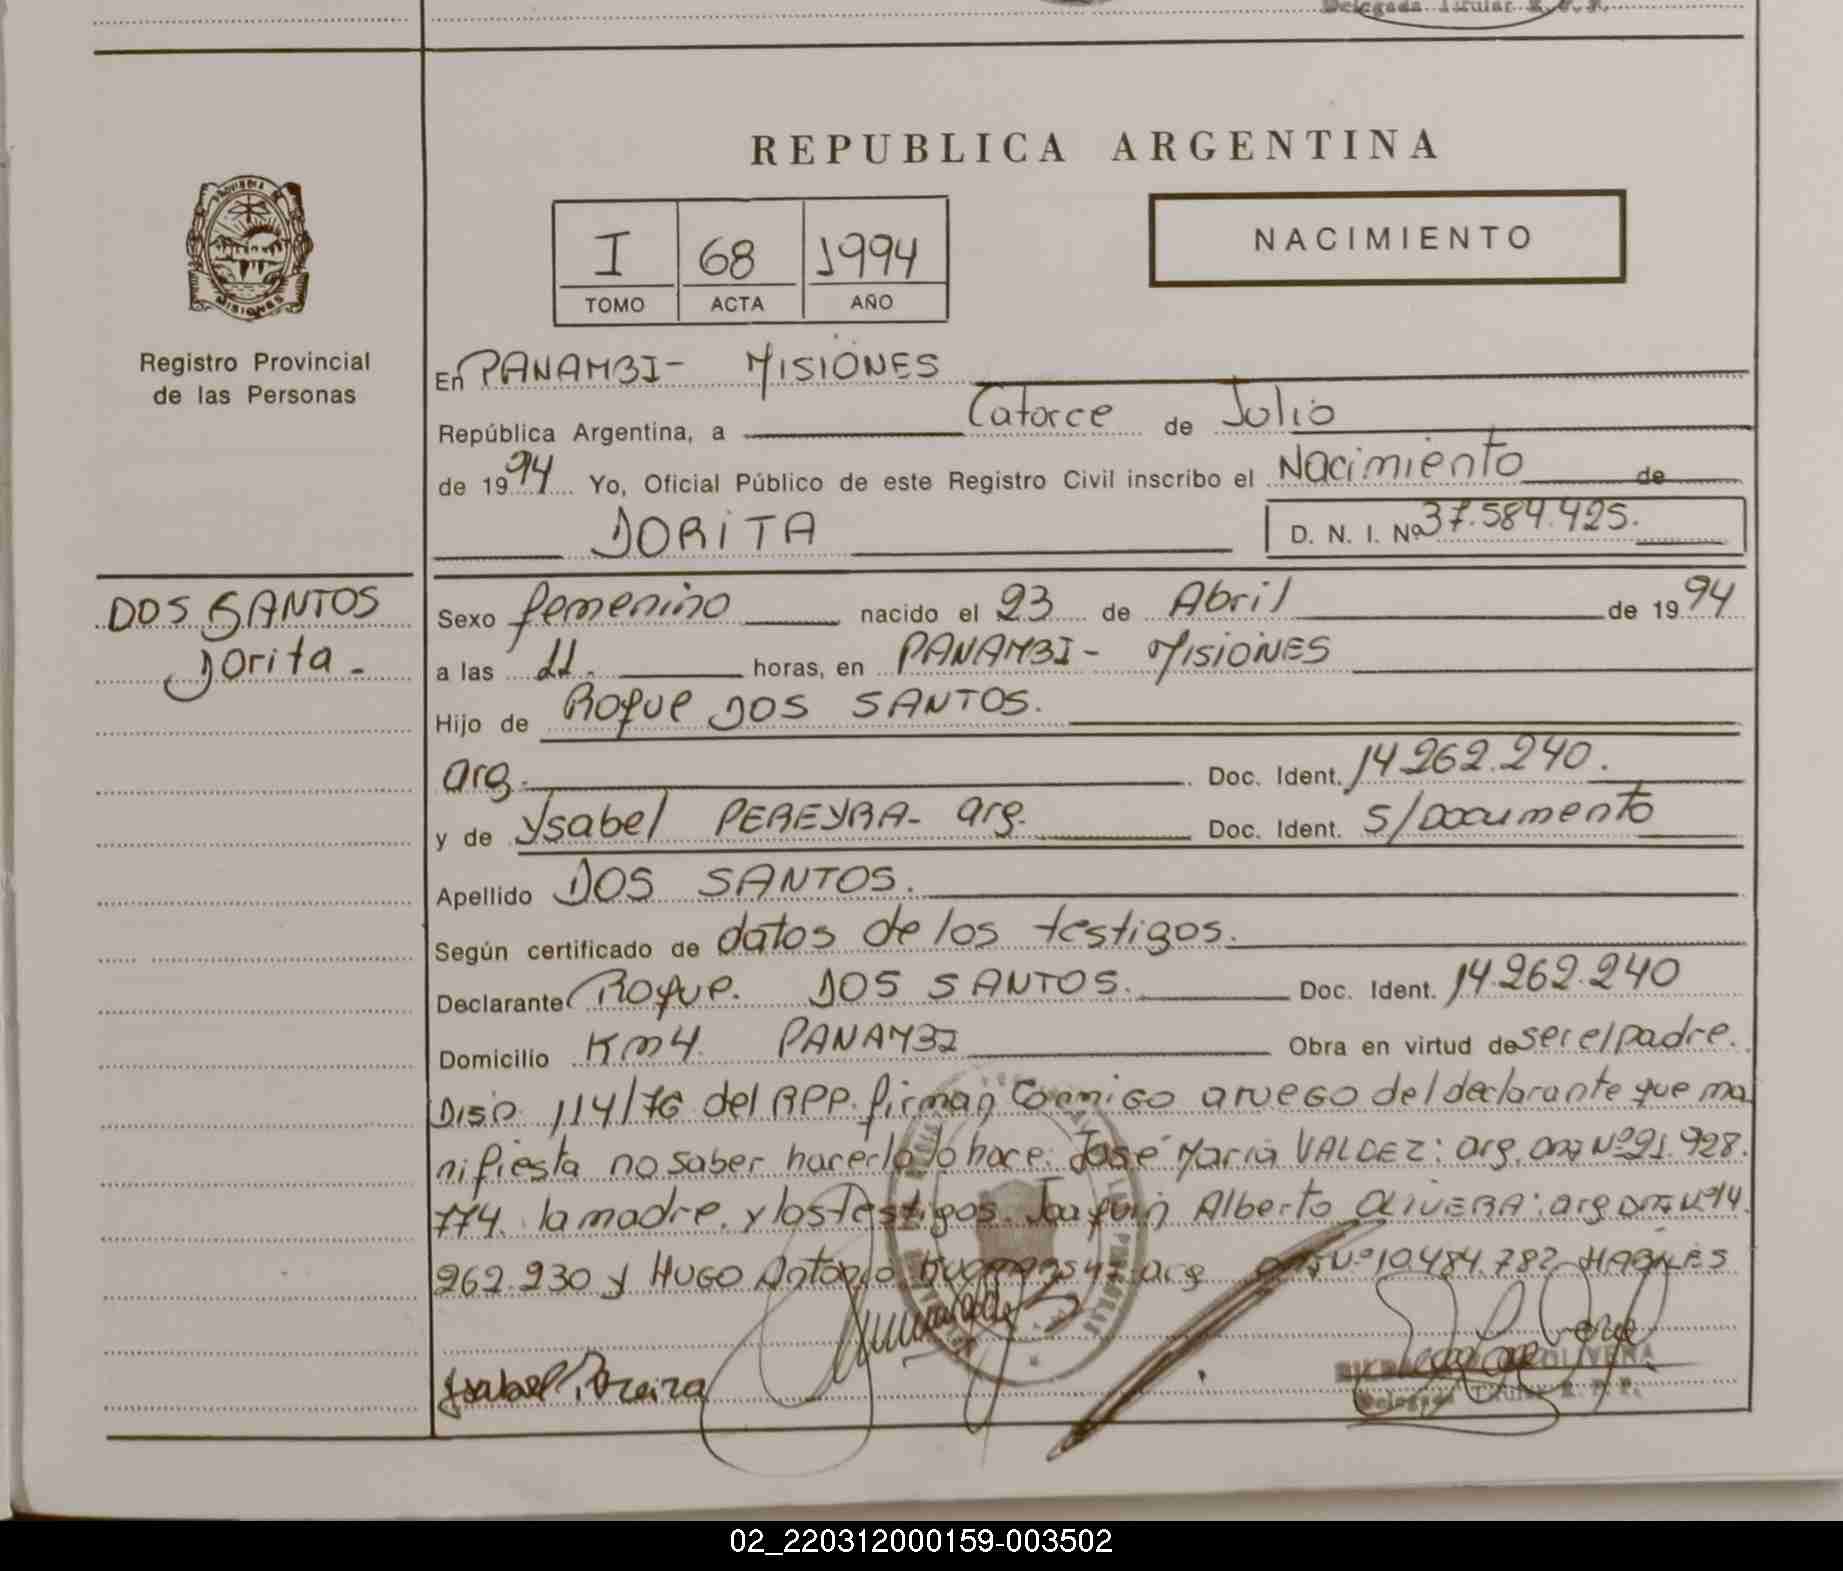 Delegada Titular R. P. P.
REPUBLICA ARGENTINA
PROVINCIA DE
MISIONES
I 68 1994
TOMO ACTA AÑO
NACIMIENTO
Registro Provincial
de las Personas
En PANAMBI- MISIONES
República Argentina, a Catorce de Julio
de 1994 Yo, Oficial Público de este Registro Civil inscribo el Nacimiento de
DORITA D. N. I. Nº 37.584.425.
DOS SANTOS
Dorita-
Sexo femenino nacido el 23 de Abril de 1994
a las 11. horas, en PANAMBI- MISIONES
Hijo de Roque DOS SANTOS.
arg. Doc. Ident. 14.262.240.
y de Ysabel PEREYRA- arg. Doc. Ident. S/Documento
Apellido DOS SANTOS.
Según certificado de datos de los testigos.
Declarante Roque. DOS SANTOS. Doc. Ident. 14.262.240
Domicilio Km 4. PANAMBI Obra en virtud de ser el padre.
Disp. 114/76 del RPP. firman Conmigo a ruego del declarante que ma
nifiesta no saber hacerlo lo hace. José María VALDEZ: arg. DNI Nº 91.928.
774. la madre. y los testigos. Joaquín Alberto OLIVERA: arg DNI Nº 14.
262.230 y HUGO Antonio arg DNI Nº 10.484.782 HABILES
Ysabel Pereira
OLIVERA
Delegada Titular R. P. P.
02_220312000159-003502